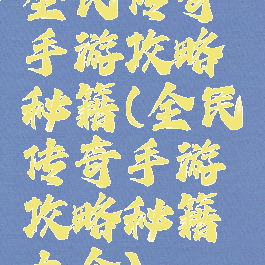 全民传奇
手游攻略
秘籍(全民
传奇手游
攻略秘籍
大全)